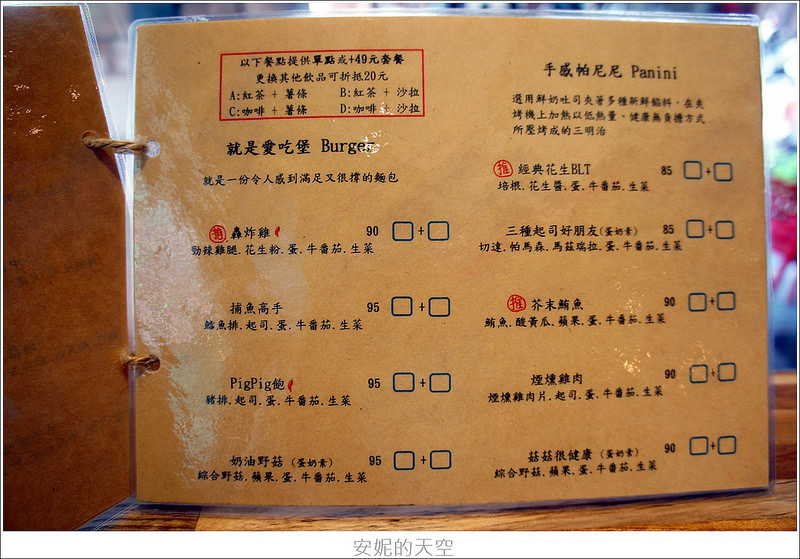 以下餐點提供單點或+49元套餐
更換其他飲品可折抵20元
A:紅茶 + 薯條 B:紅茶 + 沙拉
C:咖啡 + 薯條 D:咖啡 + 沙拉
就是愛吃堡 Burger
就是一份令人感到滿足又很撐的麵包
推 轟炸雞 90 +
勁辣雞腿.花生粉.蛋.牛番茄.生菜
捕魚高手 95 +
鱈魚排.起司.蛋.牛番茄.生菜
PigPig飽 95 +
豬排.起司.蛋.牛番茄.生菜
奶油野菇 (蛋奶素) 95 +
綜合野菇.蘋果.蛋.牛番茄.生菜
手感帕尼尼 Panini
選用鮮奶吐司夾著多種新鮮餡料，在夾
烤機上加熱以低熱量、健康無負擔方式
所壓烤成的三明治
推 經典花生BLT 85 +
培根.花生醬.蛋.牛番茄.生菜
三種起司好朋友(蛋奶素) 85 +
切達.帕馬森.馬茲瑞拉.蛋.牛番茄.生菜
推 芥末鮪魚 90 +
鮪魚.酸黃瓜.蘋果.蛋.牛番茄.生菜
煙燻雞肉 90 +
煙燻雞肉片.起司.蛋.牛番茄.生菜
菇菇很健康 (蛋奶素) 90 +
綜合野菇.蘋果.蛋.牛番茄.生菜
安妮的天空